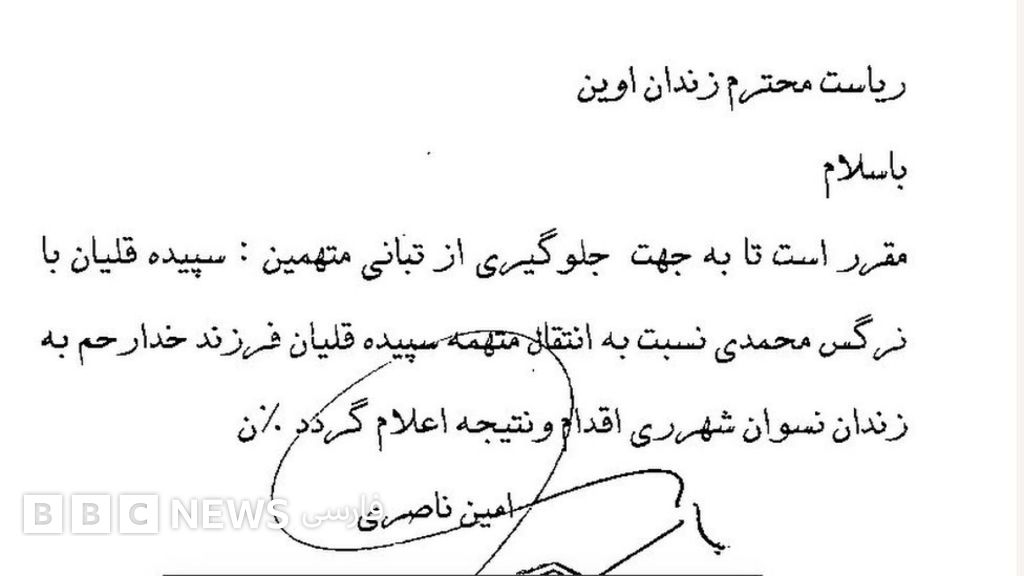 ریاست محترم زندان اوین
باسلام
مقرر است تا به جهت جلوگیری از تبانی متهمین : سپیده قلیان با
نرگس محمدی نسبت به انتقال متهمه سپیده قلیان فرزند خدارحم به
زندان نسوان شهرری اقدام ونتیجه اعلام گردد ٪ن
امین ناصری
BBC NEWS فارسی